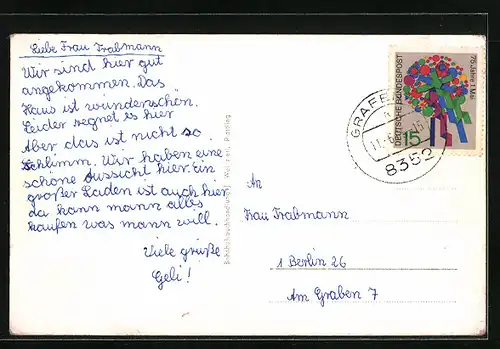 Liebe Frau Trabmann
Wir sind hier gut
angekommen. Das
Haus ist wunderschön.
Leider regnet es hier
Aber das ist nicht so
schlimm. Wir haben eine
schöne Aussicht hier. Ein
großer Laden ist auch hier
da kann mann alles
kaufen was mann will.
Viele grüße
Geli!
An
Frau Trabmann
1 Berlin 26
Am Graben 7
75 Jahre 1. Mai
DEUTSCHE BUNDESPOST
15
GRAFE
8352